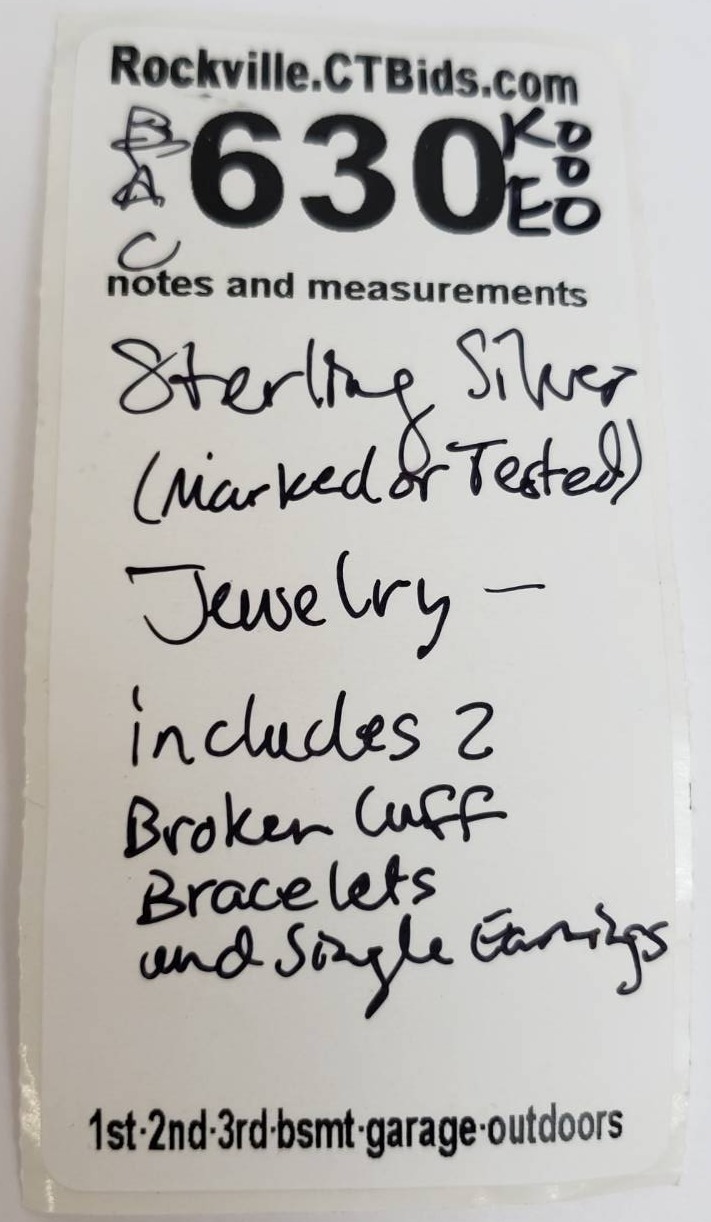 Rockville.CTBids.com
B A C 630 KD D EO
notes and measurements
Sterling Silver
(Marked or Tested)
Jewelry —
includes 2
Broken Cuff
Bracelets
and Single Earrings
1st·2nd·3rd·bsmt·garage·outdoors